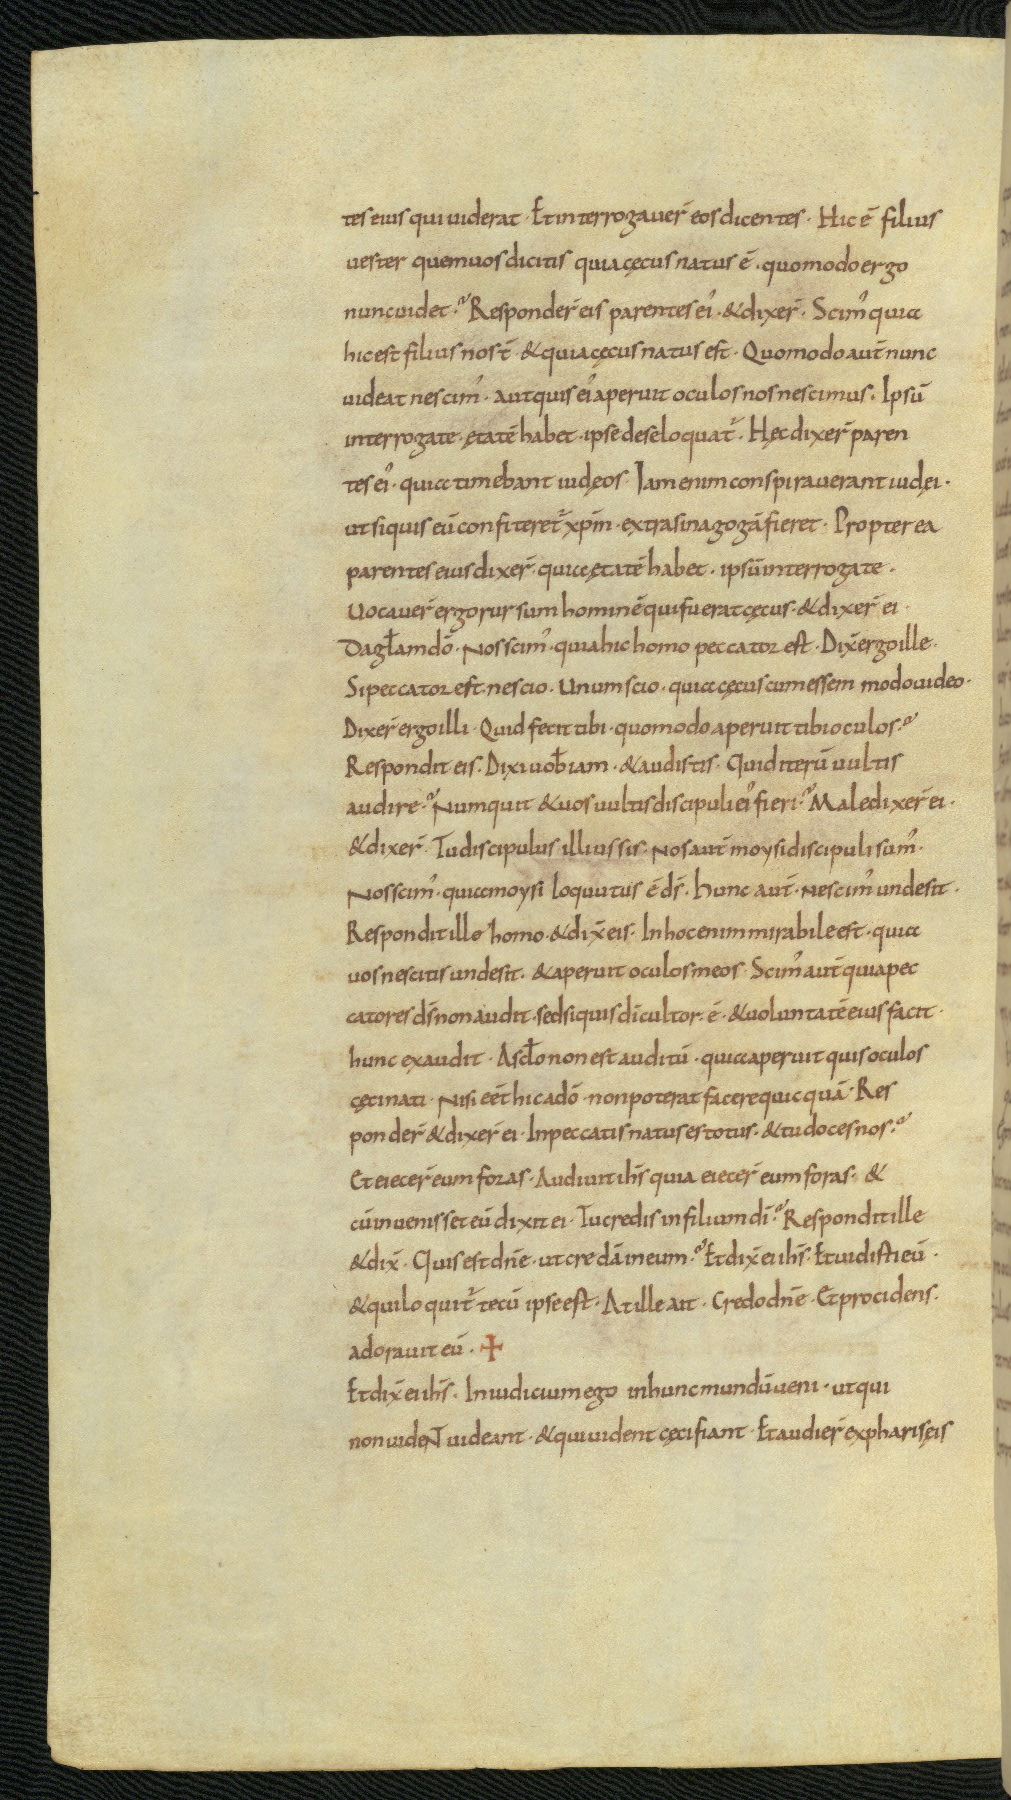 tes eius qui uiderat · Et interrogauer̄ eos dicentes · Hic ē filius
uester quem uos dicitis quia cęcus natus ē · quomodo ergo
nunc uidet ? Responder̄ eis parentes ei' · & dixer̄ · Scim' quia
hic est filius nosť · & quia cęcus natus est · Quomodo aut̄ nunc
uideat nescim' · aut quis ei' aperuit oculos nos nescimus · Ipsū
interrogate · ętatē habet · ipse de se loquat̄ · Hęc dixer̄ paren
tes ei' · quia timebant iudęos · Iam enim conspirauerant iudęi ·
ut si quis eū confiteret̄ xp̄m · extra sinagogā fieret · Propterea
parentes eius dixer̄ · quia ętatē habet · ipsū interrogate ·
Uocauer̄ ergo rursum hominē qui fuerat cęcus · & dixer̄ ei ·
Da gł̄am dō · Nos scim' · quia hic homo peccator est · Dix̄ ergo ille ·
Si peccator est · nescio · Unum scio · quia cęcus cum essem modo uideo ·
Dixer̄ ergo illi · Quid fecit tibi · quomodo aperuit tibi oculos ?
Respondit eis · Dixi uob̄ iam · & audistis · Quid iterū uultis
audire ? Numquit & uos uultis discipuli ei' fieri ? Maledixer̄ ei ·
& dixer̄ · Tu discipulus illius sis · Nos aut̄ moysi discipuli sum' ·
Nos scim' · quia moysi loquutus ē ds̄ · hunc aut̄ · nescim' unde sit ·
Respondit ille homo · & dix̄ eis · In hoc enim mirabile est · quia
uos nescitis unde sit · & aperuit oculos meos · Scim' aut̄ quia pec
catores ds̄ non audit · sed si quis dī cultor · ē · & uoluntatē eius facit ·
hunc exaudit · A scł̄o non est auditū · quia aperuit quis oculos
cęci nati · Nisi eēt hic a dō · non poterat facere quicquā · Res
ponder̄ & dixer̄ ei · In peccatis natus es totus · & tu doces nos ?
Et eiecer̄ eum foras · Audiuit ih̄s quia eiecer̄ eum foras · &
cū inuenisset eū dixit ei · Tu credis in filium dī ? Respondit ille
& dix̄ · Quis est dn̄e · ut credā in eum ? Et dix̄ ei ih̄s · Et uidisti eū ·
& qui loquit̄ tecū ipse est · At ille ait · Credo dn̄e · Et procidens ·
adorauit eū · ✝
Et dix̄ ei ih̄s · In iudicium ego in hunc mundū ueni · ut qui
non uident uideant · & qui uident cęci fiant · Et audier̄ ex pharisęis